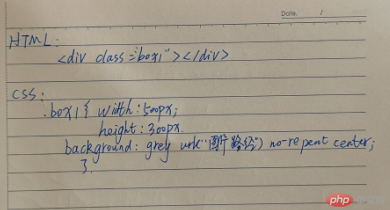 Date. /
HTML:
<div class="box1"></div>
css:
.box1 { width: 500px;
height: 300px.
background: grey url("图片路径") no-repeat center;
}.
php